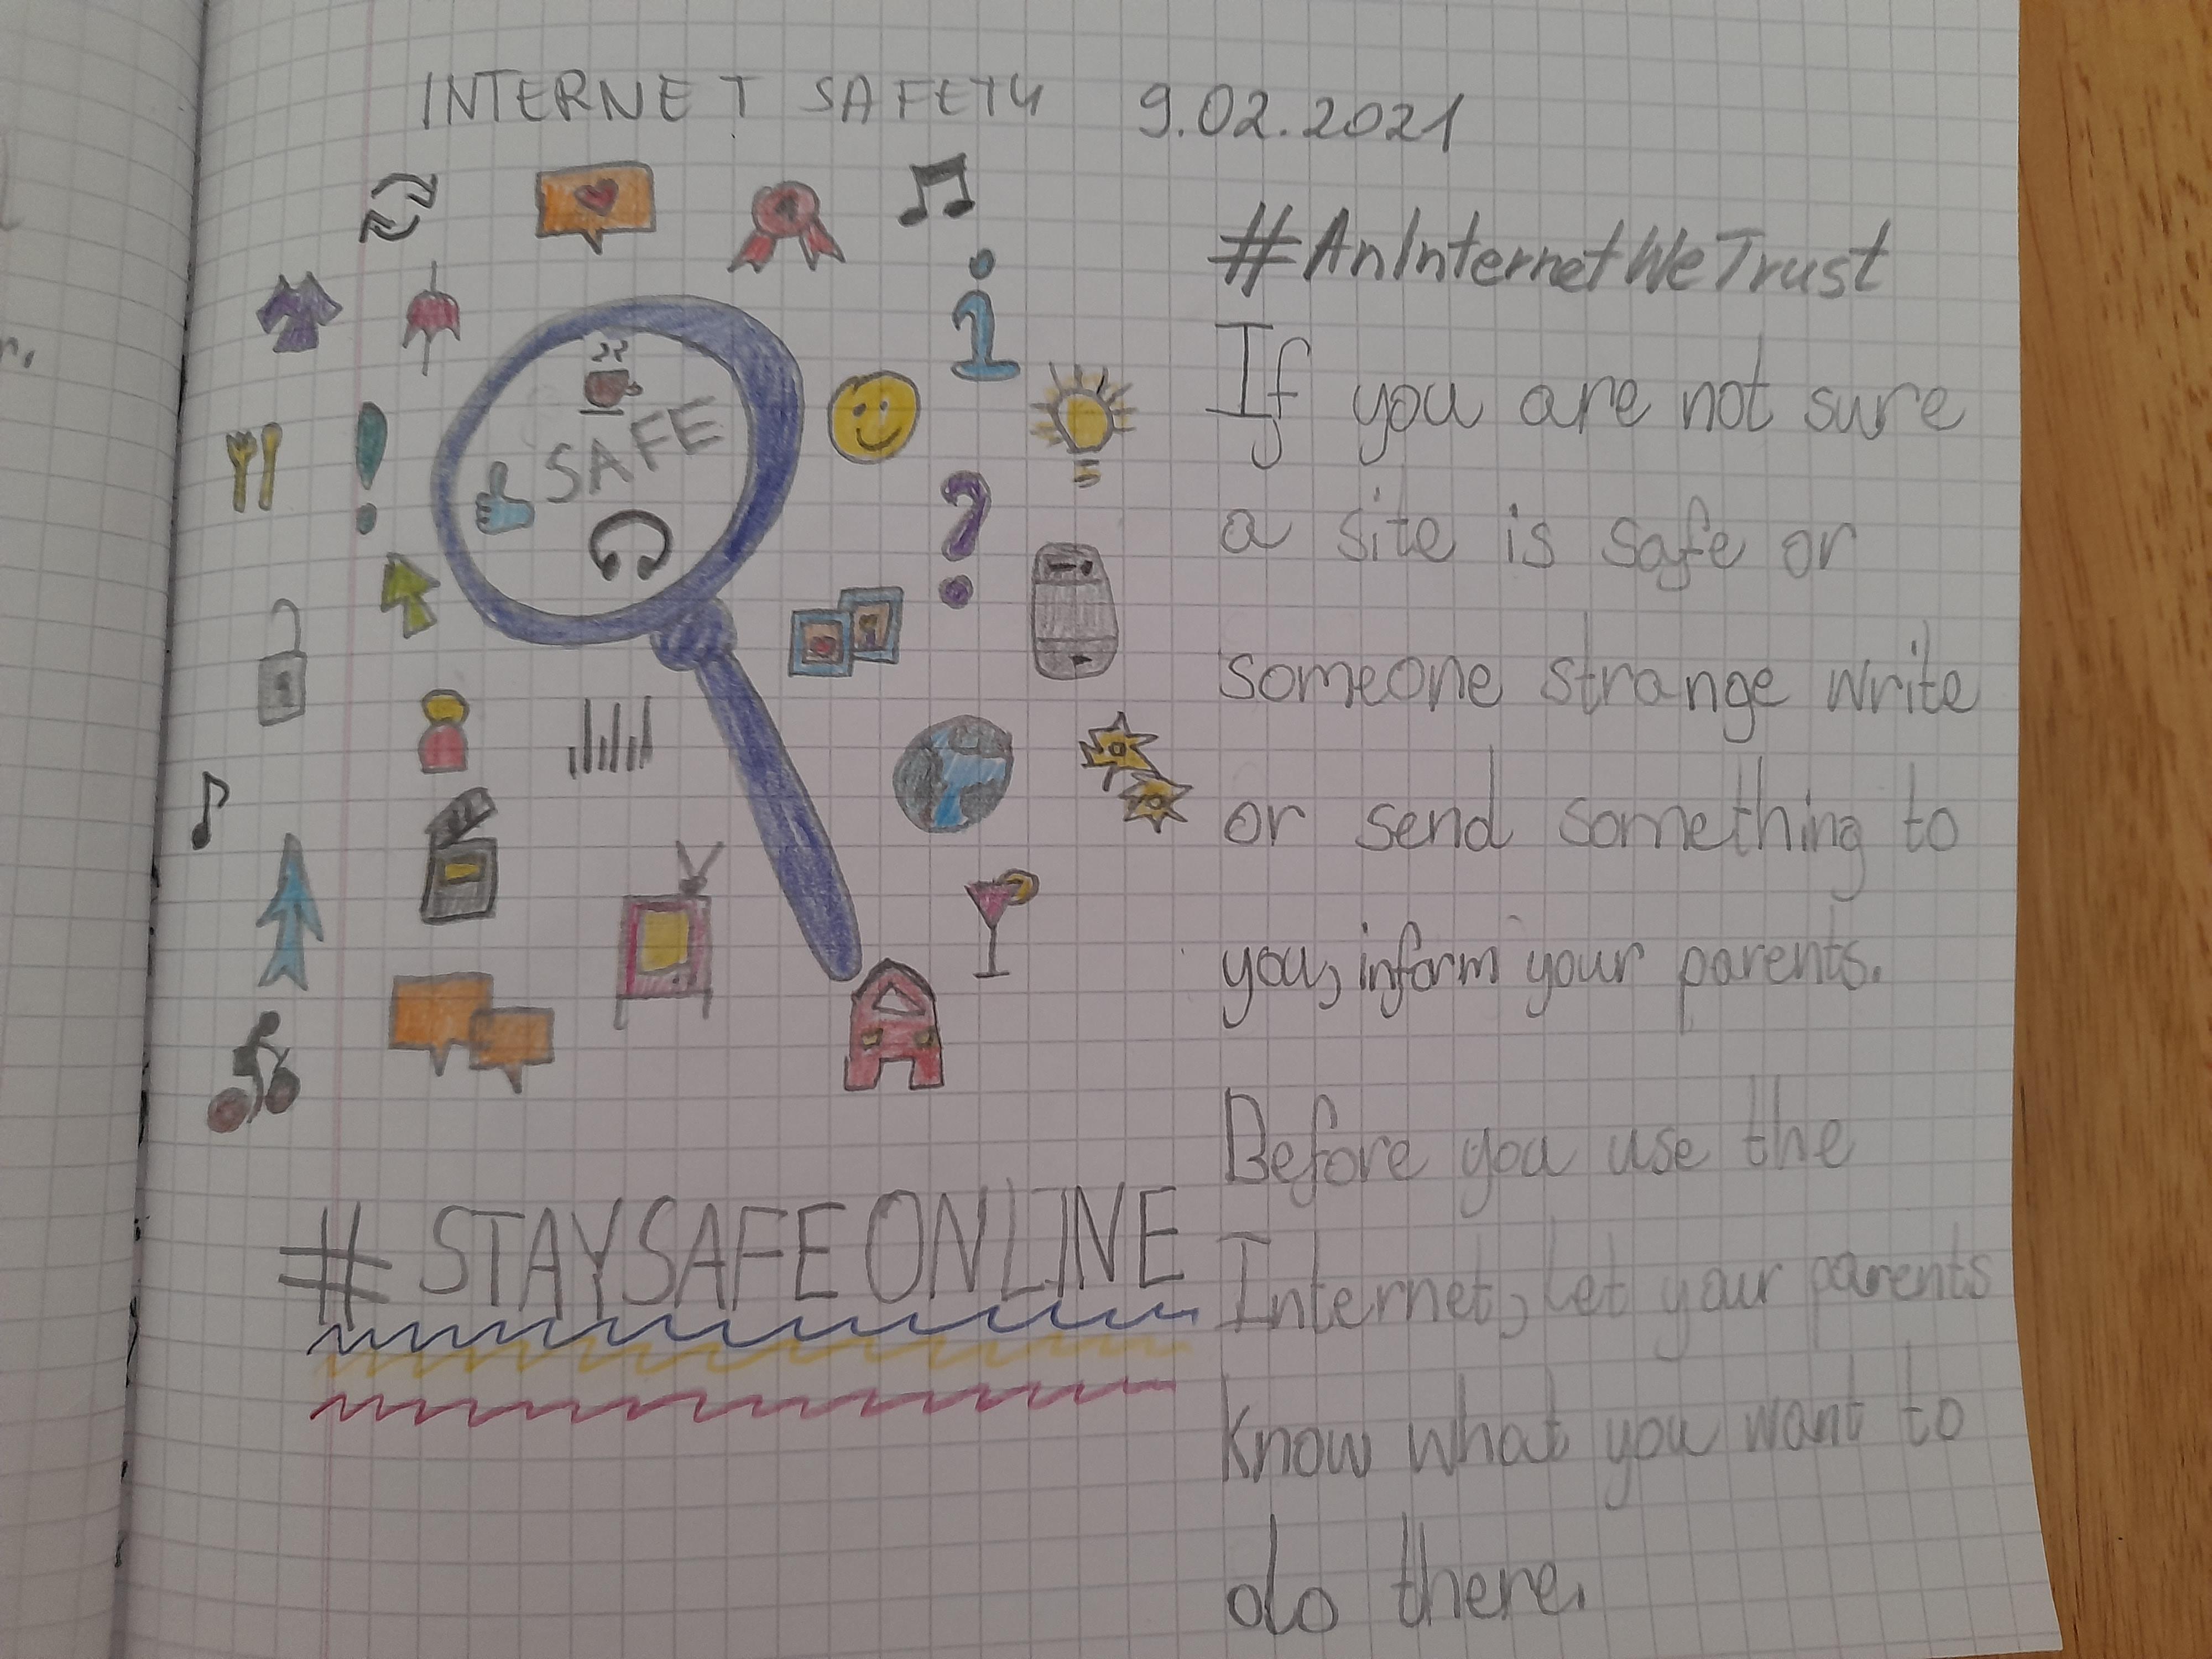 INTERNET SAFETY 9.02.2021
SAFE
#STAYSAFEONLINE
#AnInternetWeTrust
If you are not sure
a site is safe or
someone strange write
or send something to
you, inform your parents.
Before you use the
Internet, let your parents
know what you want to
do there.